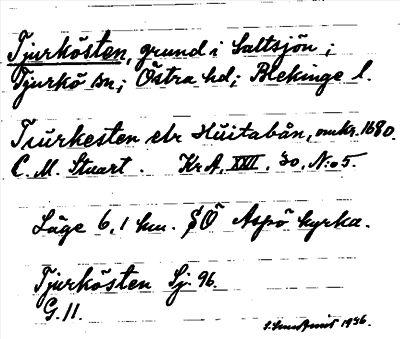 Tjurkösten, grund i Saltsjön;
Tjurkö sn; Östra hd; Blekinge l.
Tiurkesten elr Huitabån, omkr. 1680.
C. M. Stuart. Kr A, XXII, 30, N:o 5.
Läge 6,1 km. SÖ Aspö kyrka.
Tjurkösten Sj. 96.
G. 11.
1936.